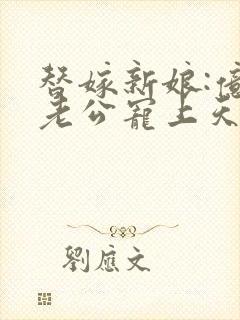 替嫁新娘:億
老公寵上天
劉應文